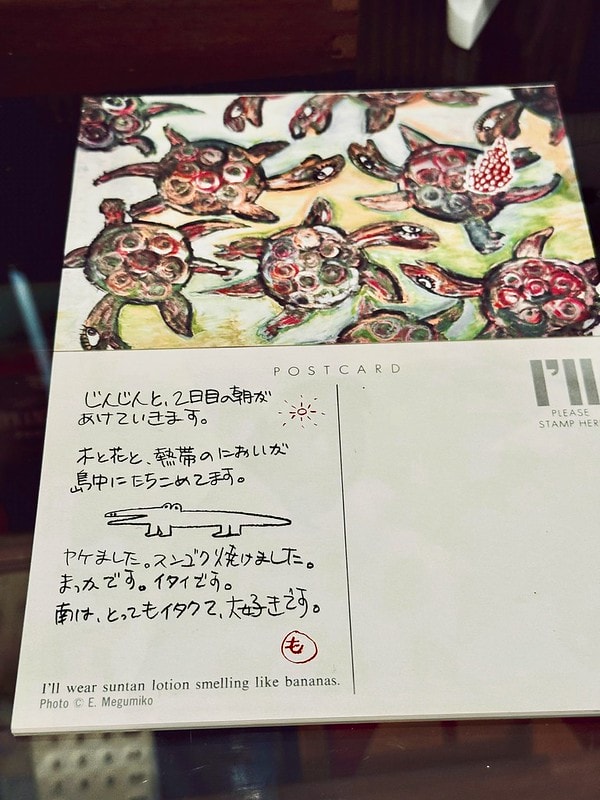 POSTCARD
I'll
PLEASE
STAMP HER
じんじんと、2日目の朝が
あけていきます。
木と花と、熱帯のにおいが
島中にたちこめてます。
ヤケました。スンゴク焼けました。
まっかです。イタイです。
南は、とってもイタクて、大好きです。
も
I'll wear suntan lotion smelling like bananas.
Photo © E. Megumiko